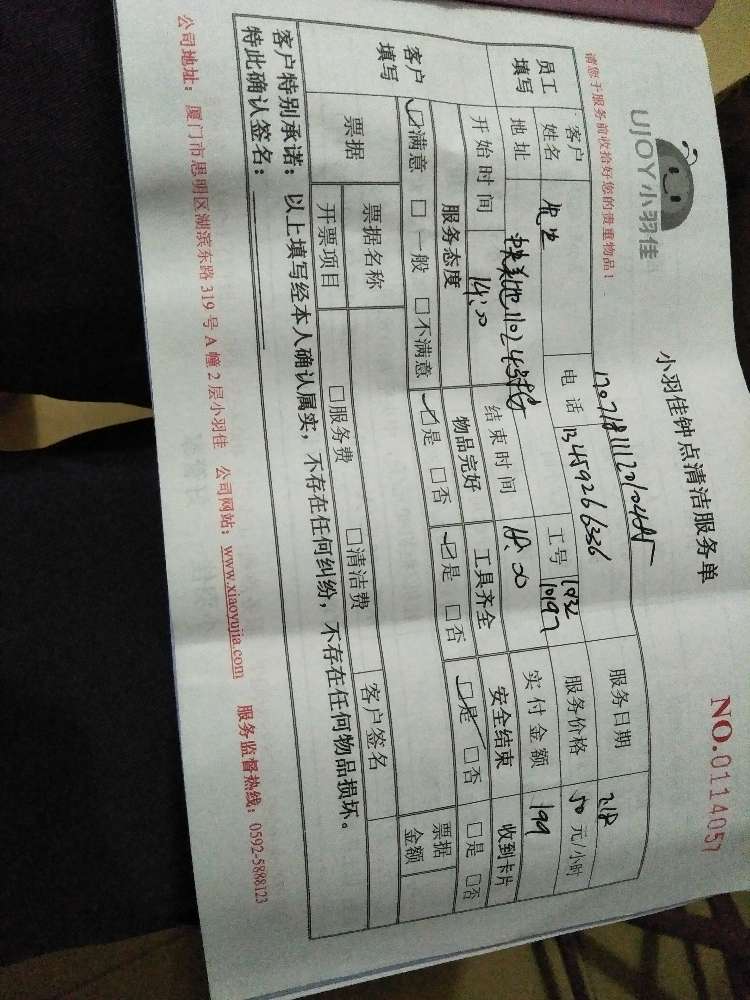 UJOY小羽佳
小羽佳钟点清洁服务单
NO.0114057
请您于服务前收拾好您的贵重物品！
服务日期 2.18
员工填写
客户姓名 先生 电话 13459266336 工号 1032 10197 服务价格 50 元/小时
地址 实付金额 199
开始时间 14:00 结束时间 18:00
客户填写
服务态度 物品完好 工具齐全 安全结束 收到卡片
☑满意 □一般 □不满意 ☑是 □否 ☑是 □否 ☑是 □否 □是 □否
票据 票据名称 票据金额
开票项目 □服务费 □清洁费 客户签名
客户特别承诺：以上填写经本人确认属实，不存在任何纠纷，不存在任何物品损坏。
特此确认签名：
公司地址：厦门市思明区湖滨东路319号A幢2层小羽佳 公司网站：www.xiaoyujia.com 服务监督热线：0592-5888123